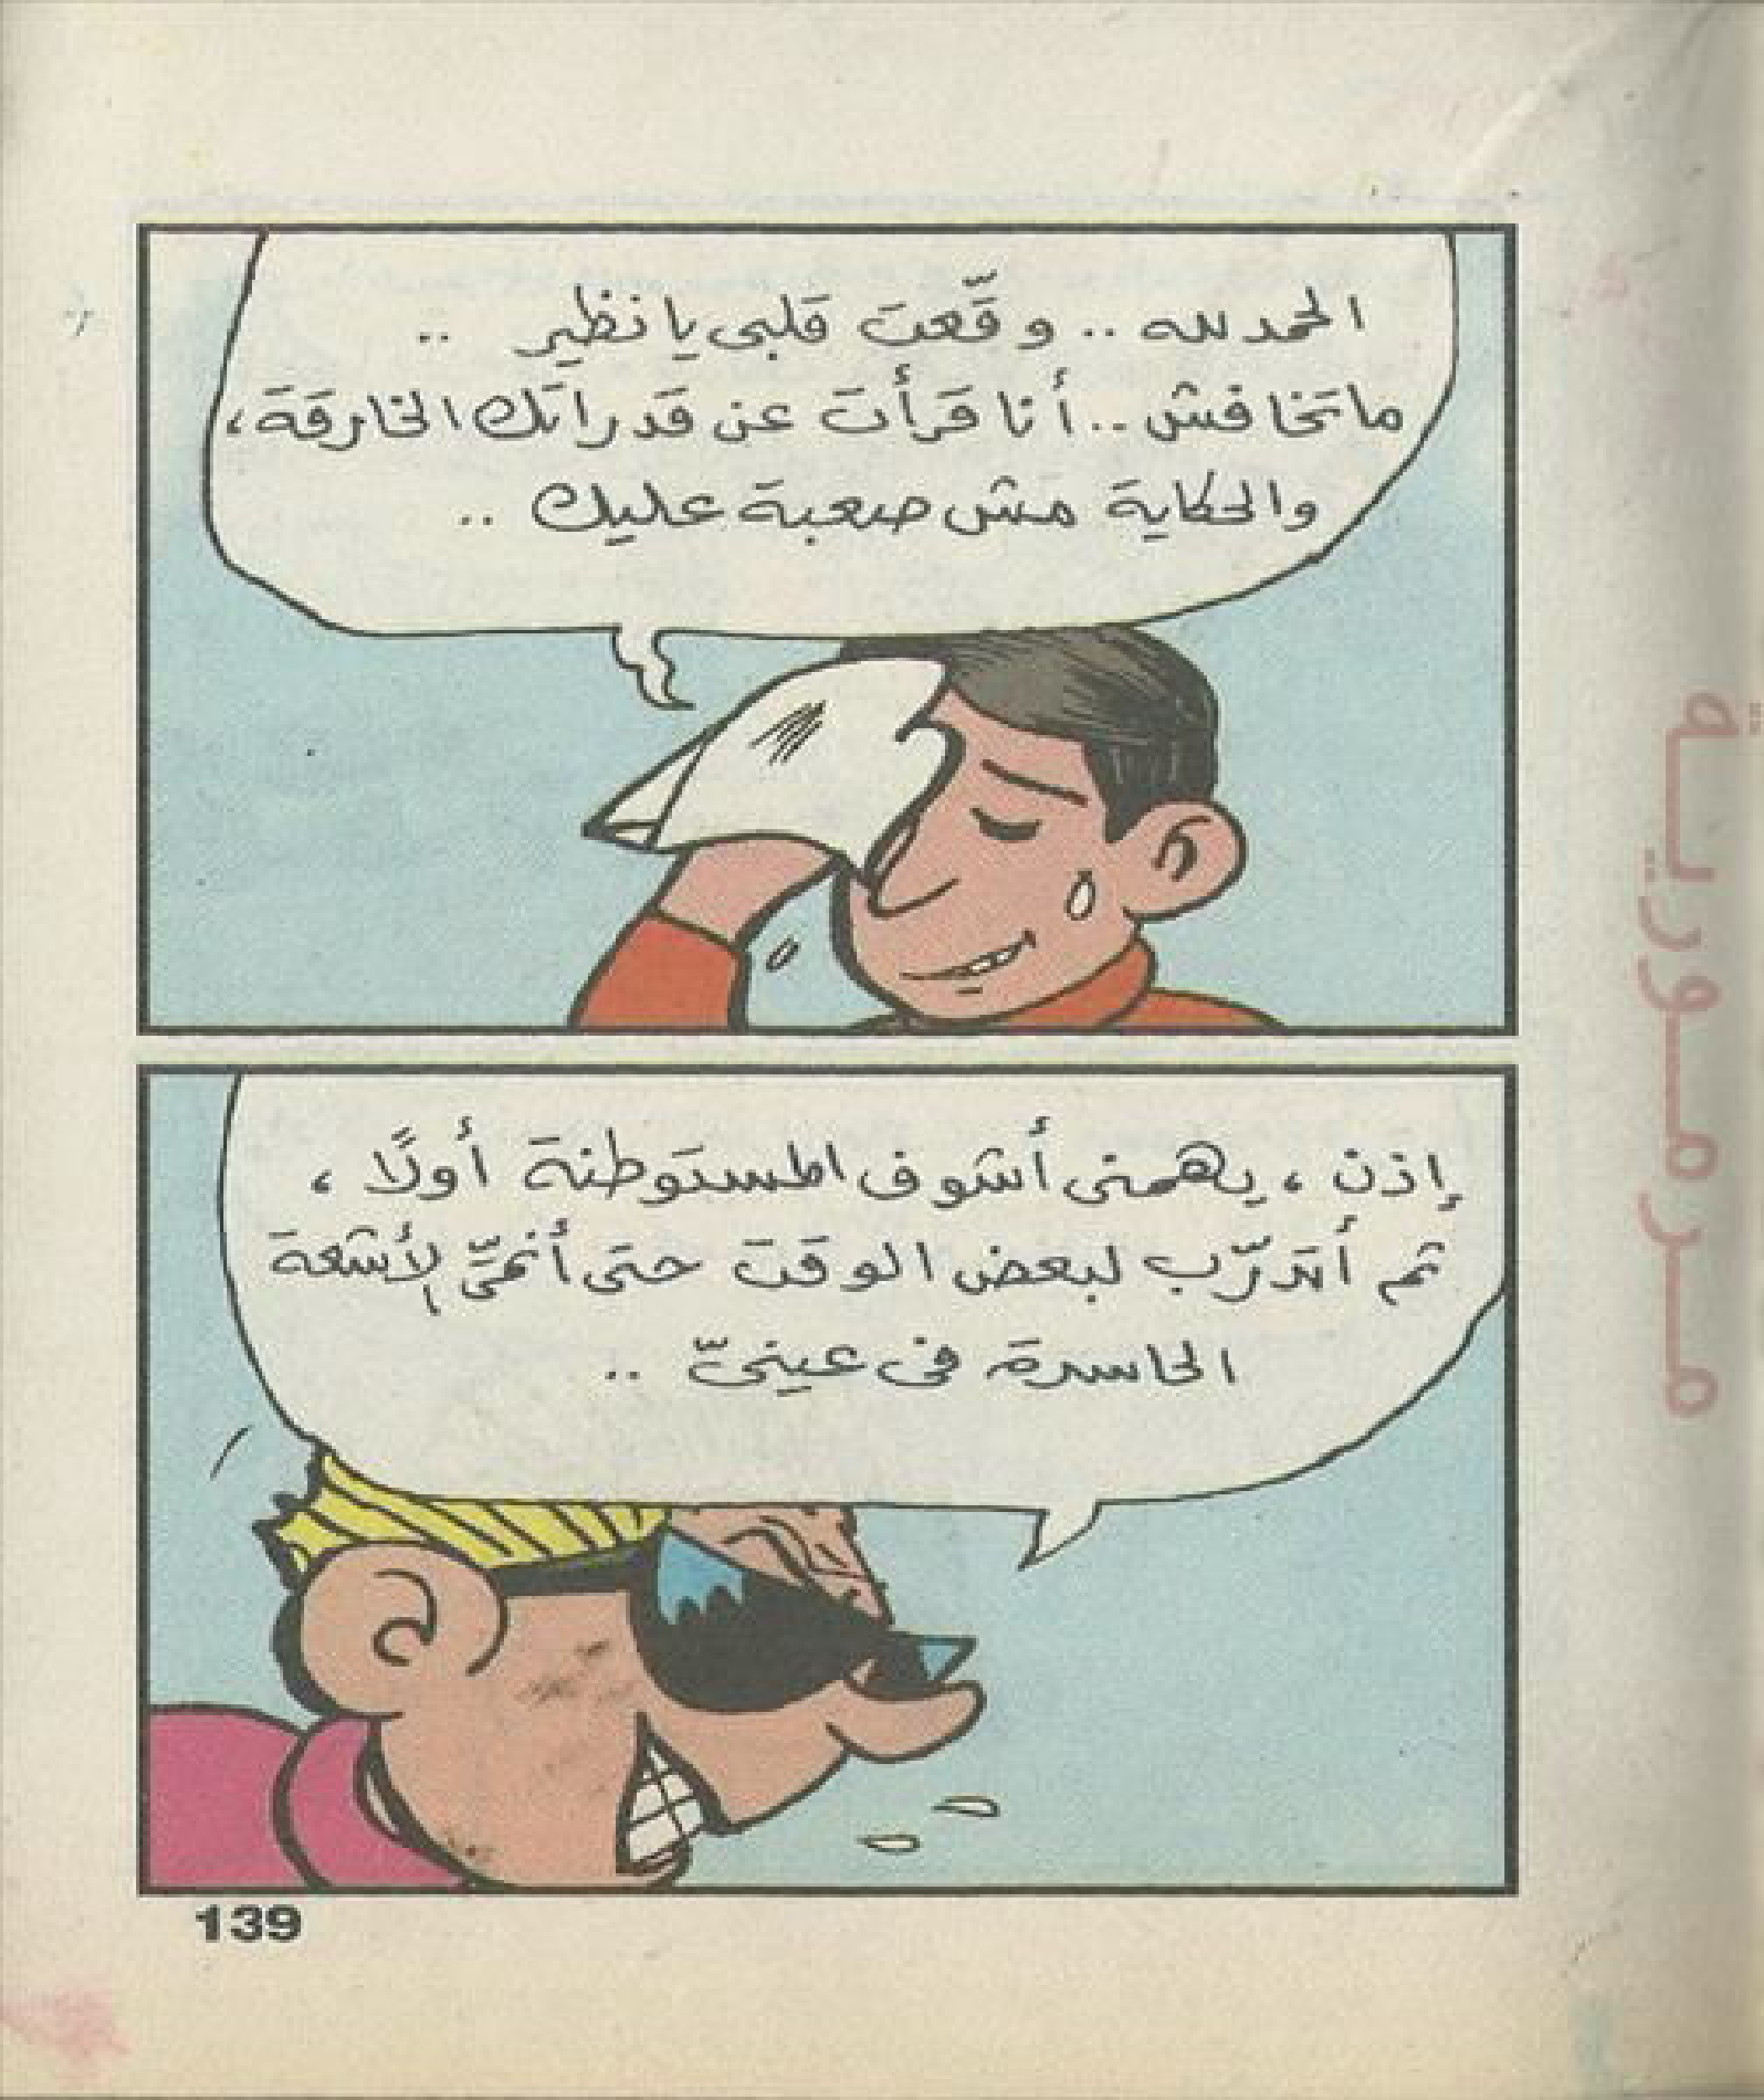 الحمد لله .. وقّعت قلبى يا نظير ..
ماتخافش .. أنا قرأت عن قدراتك الخارقة،
والحكاية مش صعبة عليك ..
إذن ، يهمنى أشوف المستوطنة أولًا ،
ثم أتدرّب لبعض الوقت حتى أنمّى الأشعة
الحاسرة فى عينىّ ..
139
مرمورية